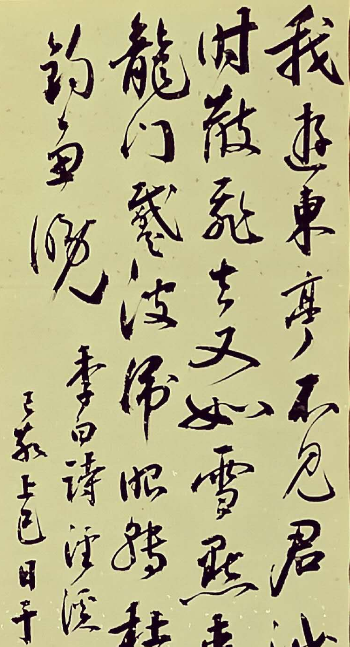 我遊東亭不見君
時散飛去又如雪點
龍門蹙波虎眼轉杜
釣魚晚
李白詩涇溪
己亥上巳日于